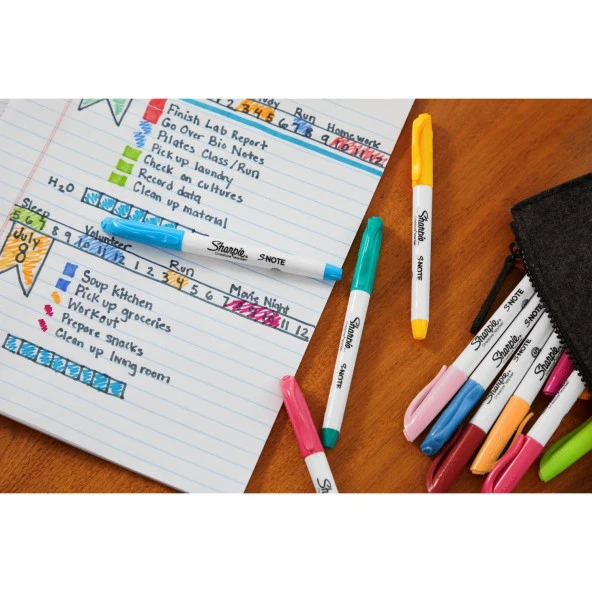 Study Homework
1 2 3 4 5 6 7 8 9 10 11 12
Finish Lab Report
Go Over Bio Notes
Pilates Class/Run
Pick up laundry
Check on cultures
Record data
Clean up material
H2O
Sleep Volunteer Run Movie Night
5 6 7 8 9 10 11 12 1 2 3 4 5 6 7 11 12
July
8
Soup Kitchen
Pick up groceries
Workout
Prepare snacks
Clean up living room
Sharpie S·NOTE
Creative Marker
Sharpie S·NOTE
Sharpie S·NOTE
Sharpie
Sharpie S·NOTE
Sharpie S·NOTE
Sharpie S·NOTE
Sharpie
Sharpie